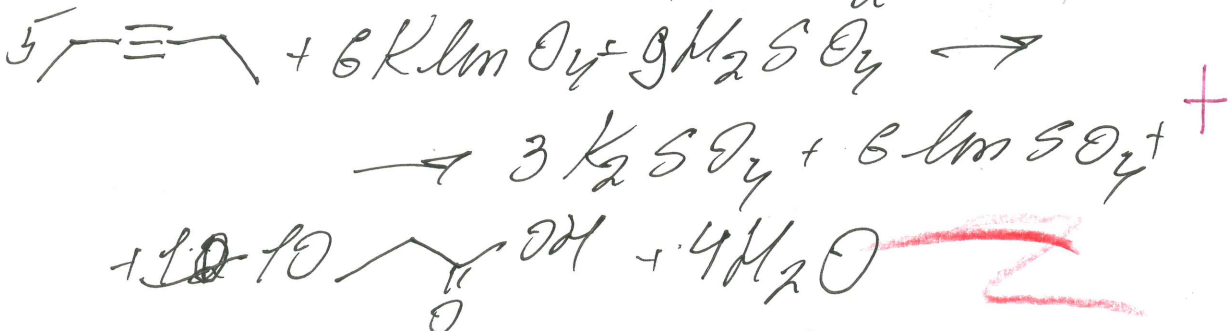 5 + 6KMnO₄ + 9H₂SO₄ →
→ 3K₂SO₄ + 6MnSO₄ +
+ 10 OH + 4H₂O
O
+